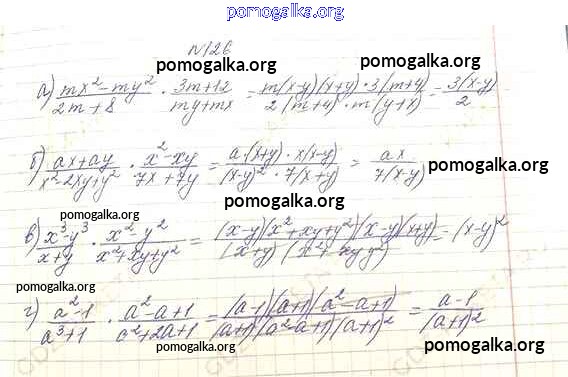 pomogalka.org
№126
pomogalka.org pomogalka.org
а) (mx² - my²)/(2m + 8) · (3m + 12)/(my + mx) = (m(x-y)(x+y) · 3(m+4))/(2(m+4) · m(y+x)) = 3(x-y)/2
pomogalka.org
б) (ax + ay)/(x² - 2xy + y²) · (x² - xy)/(7x + 7y) = (a(x+y) · x(x-y))/((x-y)² · 7(x+y)) = ax/7(x-y)
pomogalka.org
pomogalka.org
в) (x³ - y³)/(x + y) · (x² - y²)/(x² + xy + y²) = ((x-y)(x² + xy + y²)(x-y)(x+y))/((x+y)(x² + xy + y²)) = (x-y)²
pomogalka.org
г) (a² - 1)/(a³ + 1) · (a² - a + 1)/(a² + 2a + 1) = ((a-1)(a+1)(a² - a + 1))/((a+1)(a² - a + 1)(a+1)²) = (a-1)/(a+1)²
pomogalka.org pomogalka.org